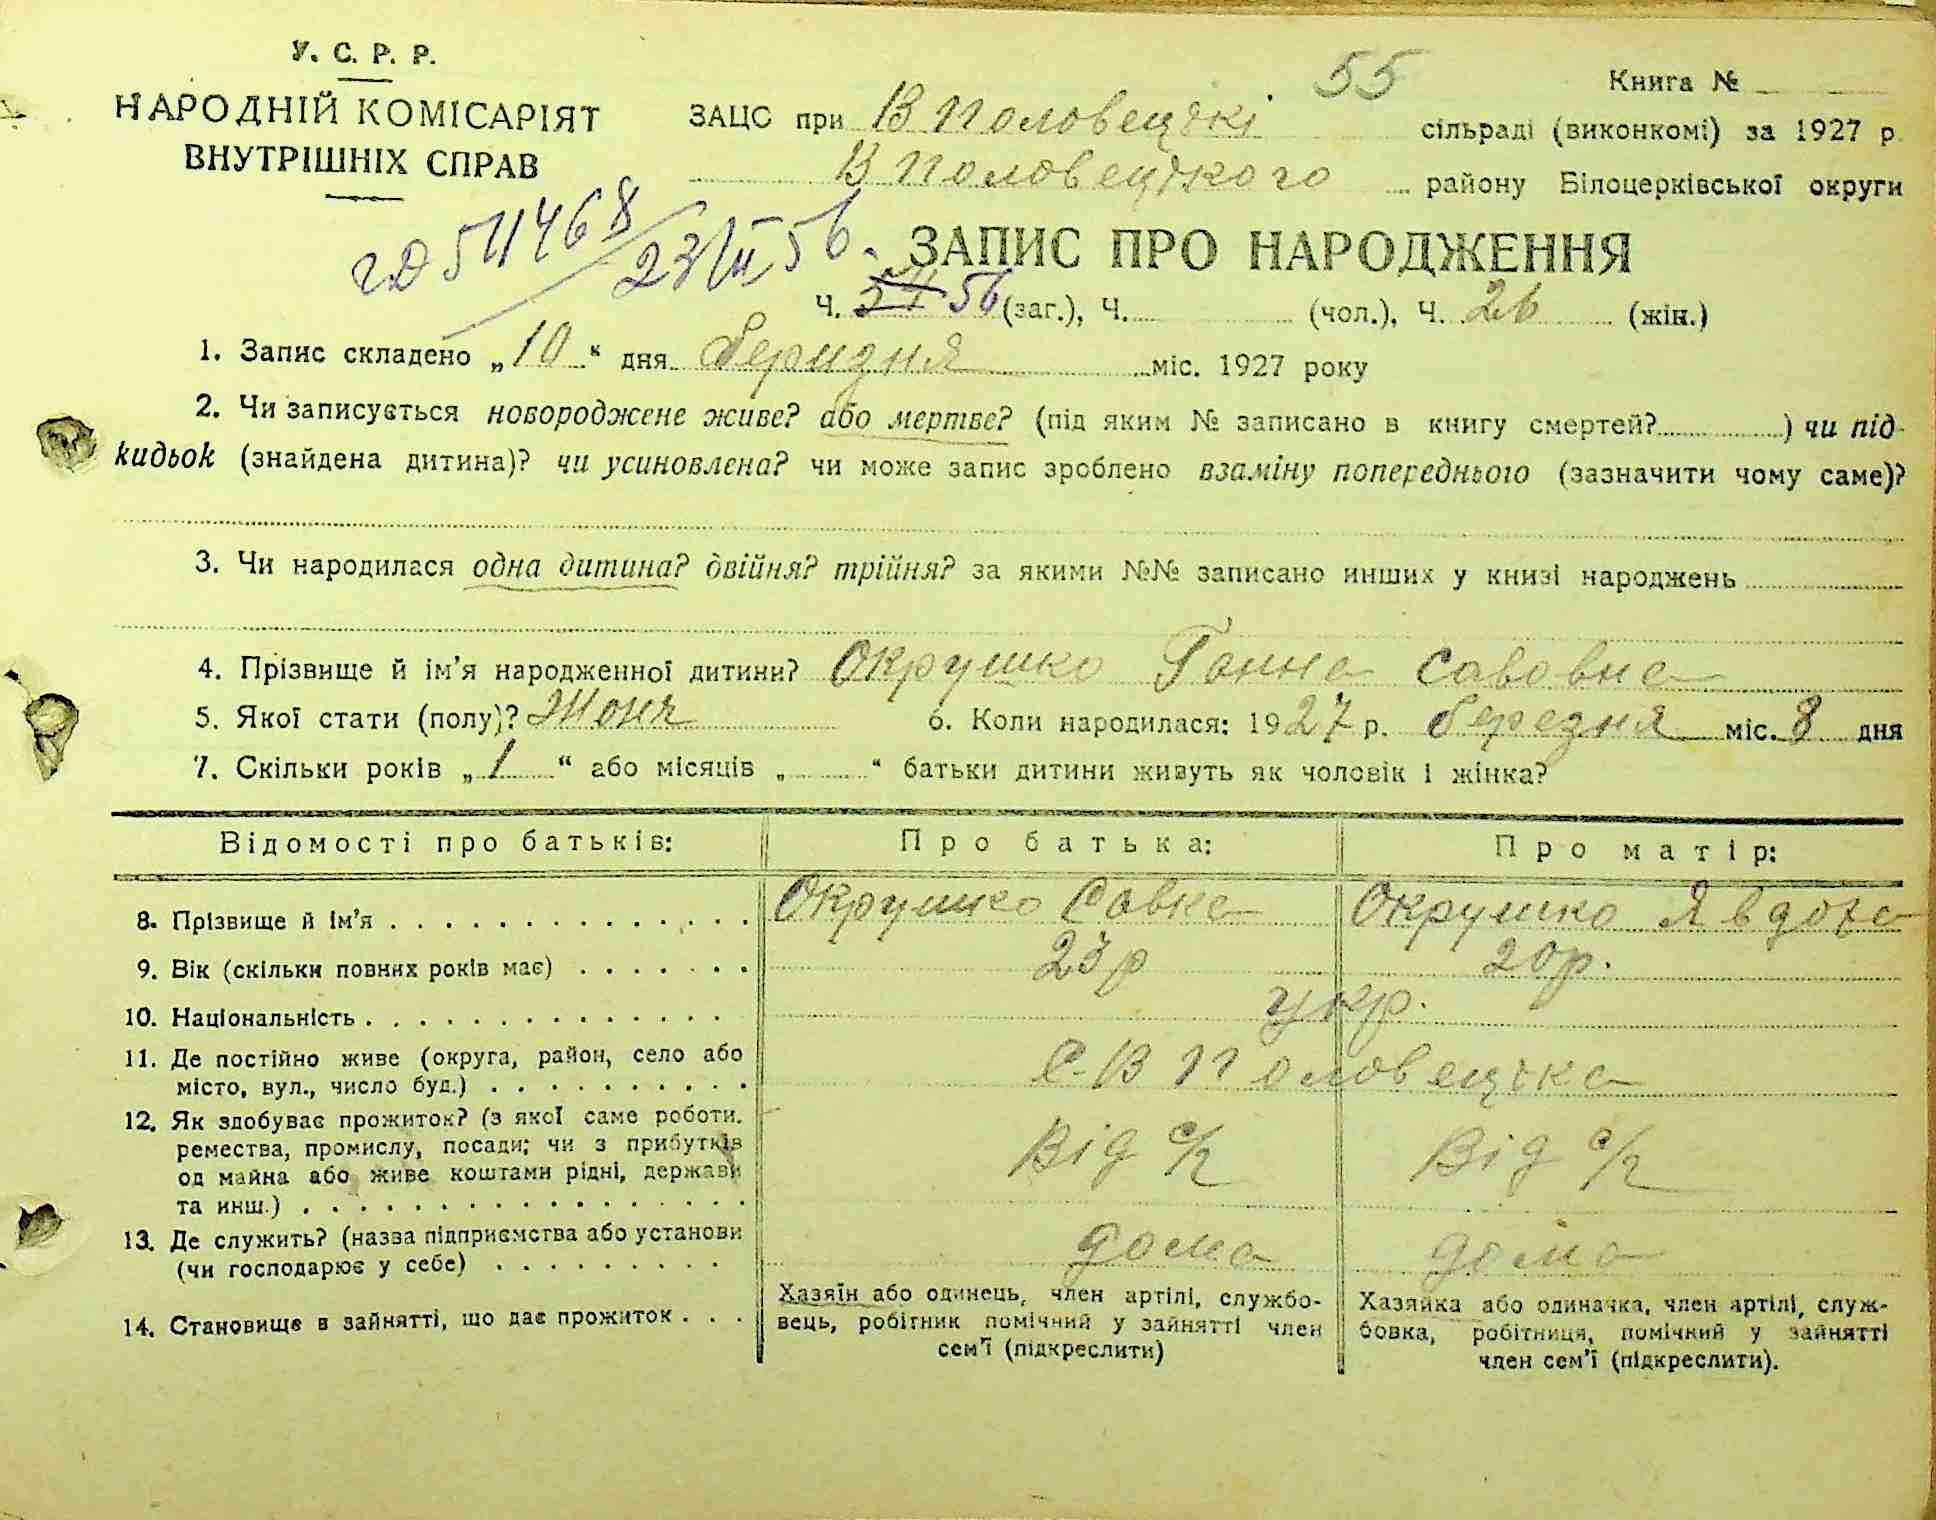 У. С. Р. Р.
НАРОДНІЙ КОМІСАРІЯТ
ВНУТРІШНІХ СПРАВ
55
Книга №
ЗАЦС при В Половецькі сільраді (виконкомі) за 1927 р.
В Половецького району Білоцерківської округи
511468 / 23/VII 56.
ЗАПИС ПРО НАРОДЖЕННЯ
Ч. 56 (заг.), Ч. (чол.), Ч. 26 (жін.)
1. Запис складено „10“ дня березня міс. 1927 року
2. Чи записується новороджене живе? або мертве? (під яким № записано в книгу смертей?) чи під-
кидьок (знайдена дитина)? чи усиновлена? чи може запис зроблено взаміну попереднього (зазначити чому саме)?
3. Чи народилася одна дитина? двійня? трійня? за якими №№ записано инших у книзі народжень
4. Прізвище й ім’я народженної дитини? Окрушко Ганна Савовна
5. Якої стати (полу)? Жоня 6. Коли народилася: 1927 р. березня міс. 8 дня
7. Скільки років „1“ або місяців „ “ батьки дитини живуть як чоловік і жінка?
Відомості про батьків: Про батька: Про матір:
8. Прізвище й ім’я Окрушко Савка Окрушко Явдоха
9. Вік (скільки повних років має) 23 р 20 р.
10. Національність укр.
11. Де постійно живе (округа, район, село або
місто, вул., число буд.) с. В Половецька
12. Як здобуває прожиток? (з якої саме роботи,
ремества, промислу, посади; чи з прибутків
од майна або живе коштами рідні, держави
та инш.) Від с/г Від с/г
13. Де служить? (назва підприємства або установи
(чи господарює у себе) дома дома
14. Становище в зайнятті, що дає прожиток
Хазяїн або одинець, член артілі, службо-
вець, робітник помічний у зайнятті член
сем’ї (підкреслити)
Хазяйка або одиначка, член артілі, служ-
бовка, робітниця, помічний у зайнятті
член сем’ї (підкреслити).